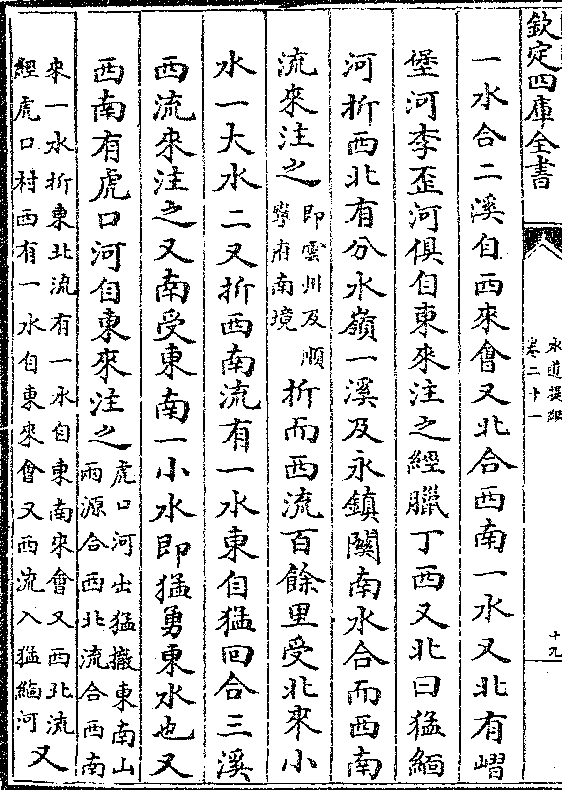 欽定四庫全書
水道提綱
卷二十一
十九
一水合二溪自西來會又北合西南一水又北有嶍
堡河李歪河俱自東來注之經臘丁西又北曰猛緬
河折西北有分水嶺一溪及永鎮關南水合而西南
流來注之即雲州及順寧府南境折而西流百餘里受北來小
水一大水二又折西南流有一水東自猛回合三溪
西流來注之又南受東南一小水即猛勇東水也又
西南有虎口河自東來注之虎口河出猛撒東南山兩源合西北流合西南
來一水折東北流有一水自東南來會又西北流經虎口村西有一水自東來會又西流入猛緬河又